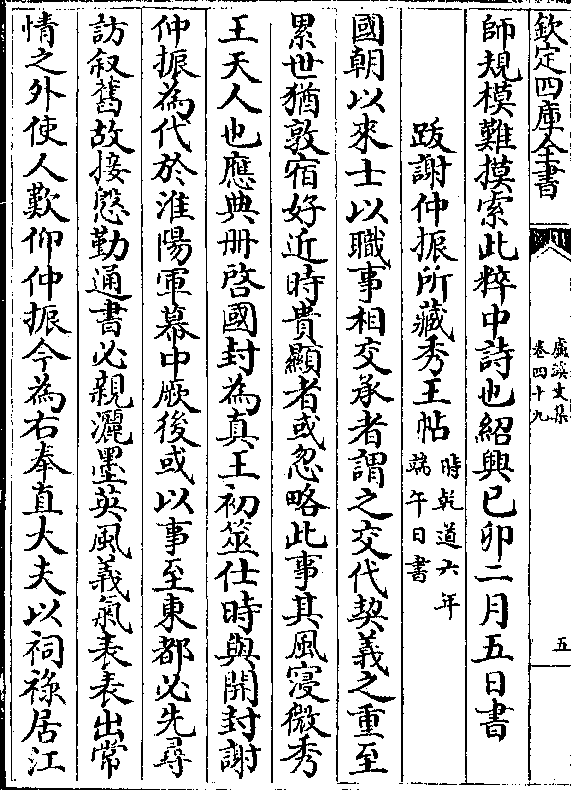 欽定四庫全書
盧溪文集
卷四十九
五
師規模難摸索此粹中詩也紹興己卯二月五日書
跋謝仲振所藏秀王帖時乾道六年
端午日書
國朝以來士以職事相交承者謂之交代契義之重至
累世猶敦宿好近時貴顯者或忽略此事其風寖微秀
王天人也應典册啓國封為真王初筮仕時與開封謝
仲振為代於淮陽軍幕中厥後或以事至東都必先尋
訪叙舊故接慇勤通書必親灑墨英風義氣表表出常
情之外使人歎仰仲振今為右奉直大夫以祠祿居江